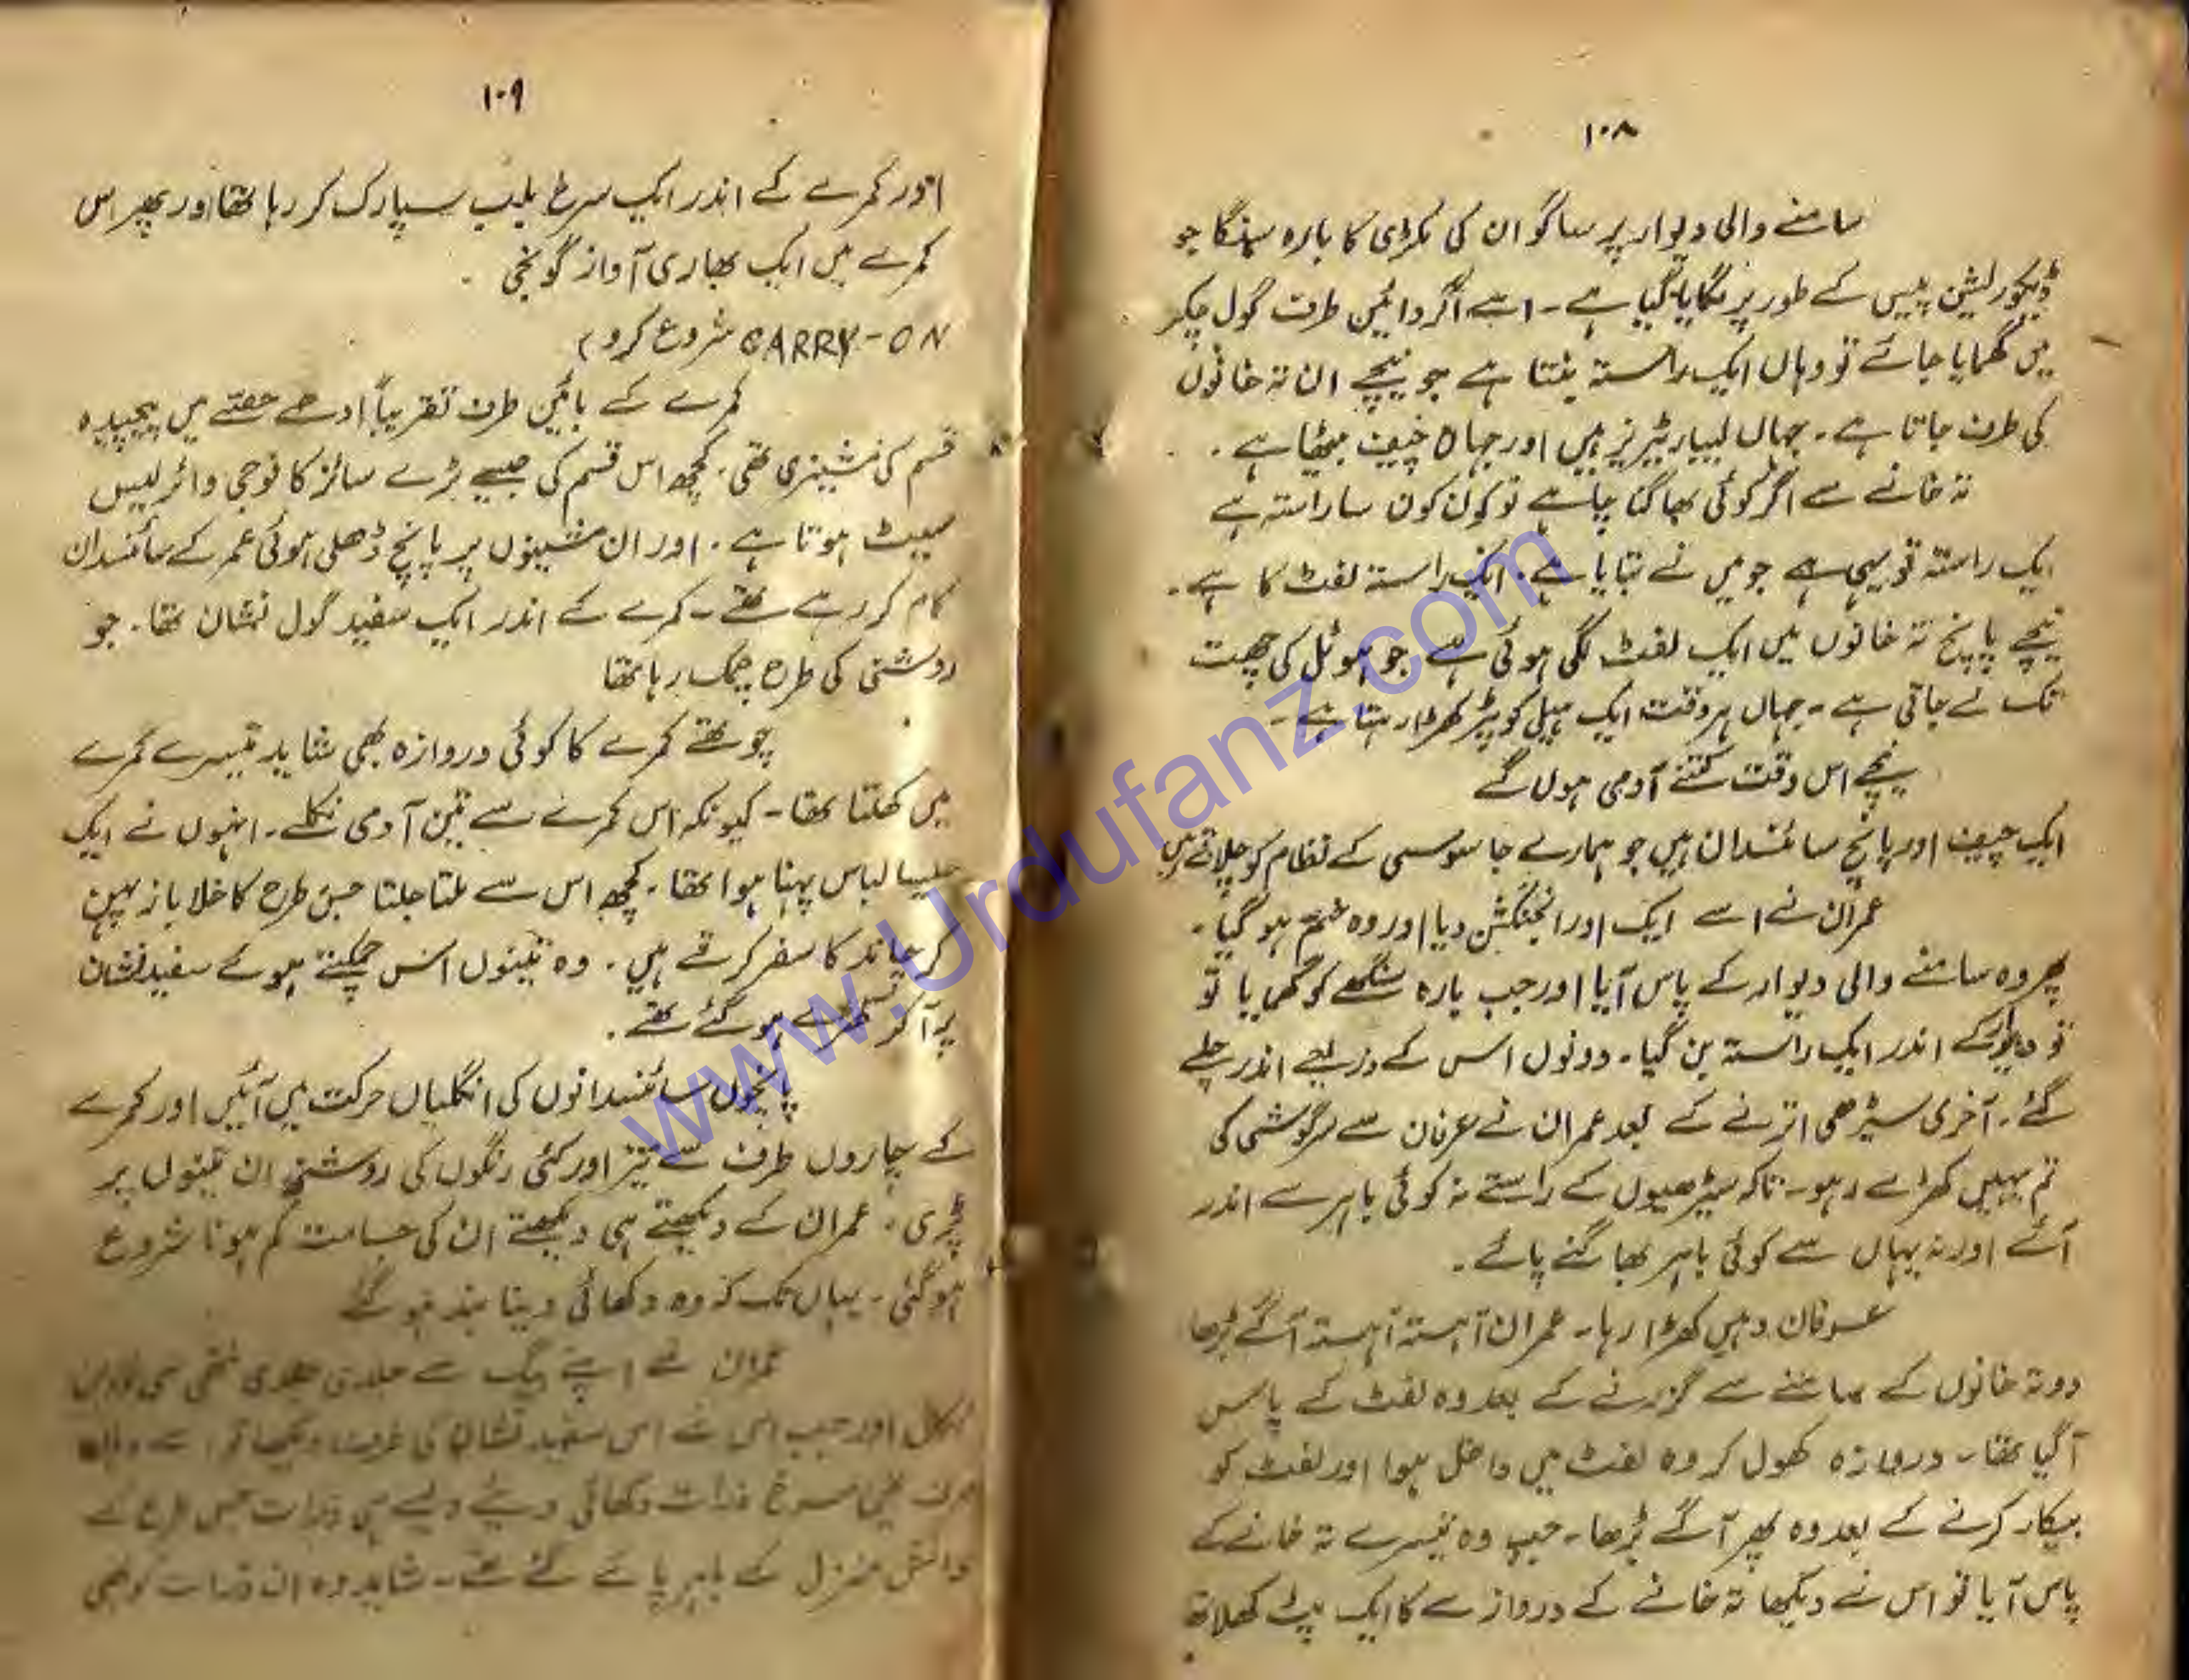 ۱۰۸
سامنے والی دیوار پر ساگوان کی لکڑی کا بارہ سنگا جو
ڈیکوریشن پیس کے طور پر لگایا گیا ہے ۔ اسے اگر دائیں طرف گول چکر
میں گھمایا جائے تو وہاں ایک راستہ بنتا ہے جو نیچے ان تہ خانوں
کی طرف جاتا ہے ۔ جہاں لیبارٹیریز ہیں اور جہاں چیف بیٹھا ہے ۔
تہ خانے سے اگر کوئی بھاگنا چاہے تو کون کون سا راستہ ہے
ایک راستہ تو یہی ہے جو میں نے بتایا ہے ۔ ایک راستہ لفٹ کا ہے ۔
نیچے پانچ تہ خانوں میں ایک لفٹ لگی ہوئی ہے جو ہوٹل کی چھت
تک لے جاتی ہے ۔ جہاں ہر وقت ایک ہیلی کوپٹر کھڑا رہتا ہے ۔
نیچے اس وقت کتنے آدمی ہوں گے
ایک چیف اور پانچ سائنسدان ہیں جو ہمارے جاسوسی کے نظام کو چلاتے ہیں
عمران نے اسے ایک اور انجکشن دیا اور وہ ختم ہو گیا ۔
پھر وہ سامنے والی دیوار کے پاس آیا اور جب بارہ سنگھے کو گھمایا تو
تو دیوار کے اندر ایک راستہ بن گیا ۔ دونوں اس کے ذریعے اندر چلے
گئے ۔ آخری سیڑھی اترنے کے بعد عمران نے عرفان سے سرگوشی کی
تم یہیں کھڑے رہو ۔ تاکہ سیڑھیوں کے راستے نہ کوئی باہر سے اندر
آئے اور نہ یہاں سے کوئی باہر بھاگنے پائے ۔
عرفان وہیں کھڑا رہا ۔ عمران آہستہ آہستہ آگے بڑھا
دو تہ خانوں کے سامنے سے گزرنے کے بعد وہ لفٹ کے پاس
آگیا تھا ۔ دروازہ کھول کر وہ لفٹ میں داخل ہوا اور لفٹ کو
بیکار کرنے کے بعد وہ پھر آگے بڑھا ۔ جب وہ تیسرے تہ خانے کے
پاس آیا تو اس نے دیکھا تہ خانے کے دروازے کا ایک پٹ کھلا تھا
۱۰۹
اور کمرے کے اندر ایک سرخ بلب سپارک کر رہا تھا اور پھر اس
کمرے میں ایک بھاری آواز گونجی ۔
CARRY-ON شروع کرو )
کمرے کے بائیں طرف تقریباً ادھے حصّے میں پیچیدہ
قسم کی مشینری تھی ۔ کچھ اس قسم کی جیسے بڑے سائز کا فوجی وائرلیس
سیٹ ہوتا ہے ۔ اور ان مشینوں پر پانچ ڈھلی ہوئی عمر کے سائنسدان
کام کر رہے تھے ۔ کمرے کے اندر ایک سفید گول نشان تھا ۔ جو
روشنی کی طرح چمک رہا تھا
چوتھے کمرے کا کوئی دروازہ بھی شاید تیسرے کمرے
میں کھلتا تھا ۔ کیونکہ اس کمرے سے تین آدمی نکلے ۔ انہوں نے ایک
جیسا لباس پہنا ہوا تھا ۔ کچھ اس سے ملتا جلتا جس طرح کا خلا باز پہن
کر چاند کا سفر کرتے ہیں ۔ وہ تینوں اس چمکتے ہوئے سفید نشان
پر آکر کھڑے ہو گئے تھے ۔
پانچوں سائنسدانوں کی انگلیاں حرکت میں آئیں اور کمرے
کے چاروں طرف سے تیز اور کئی رنگوں کی روشنی ان تینوں پر
پڑی ۔ عمران کے دیکھتے ہی دیکھتے ان کی جسامت کم ہونا شروع
ہوگئی ۔ یہاں تک کہ وہ دکھائی دینا بند ہو گئے
عمران نے اپنے بیگ سے جلدی جلدی ننھی سی
نکالی اور جب اس نے اس سفید نشان کی طرف دیکھا تو اسے وہاں
صرف تین سرخ ذرات دکھائی دیئے ویسے ہی ذرات جس طرح کے
دانش منزل کے باہر پائے گئے تھے ۔ شاید وہ ان ذرات کو بھی
www.Urdufanz.com